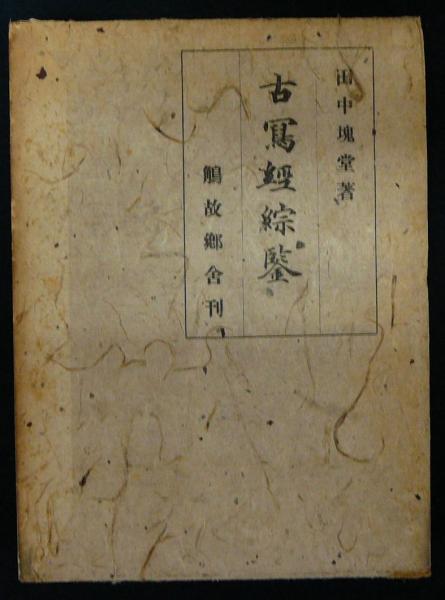 田中塊堂著
古寫經綜鑒
鵤故鄉舍刊